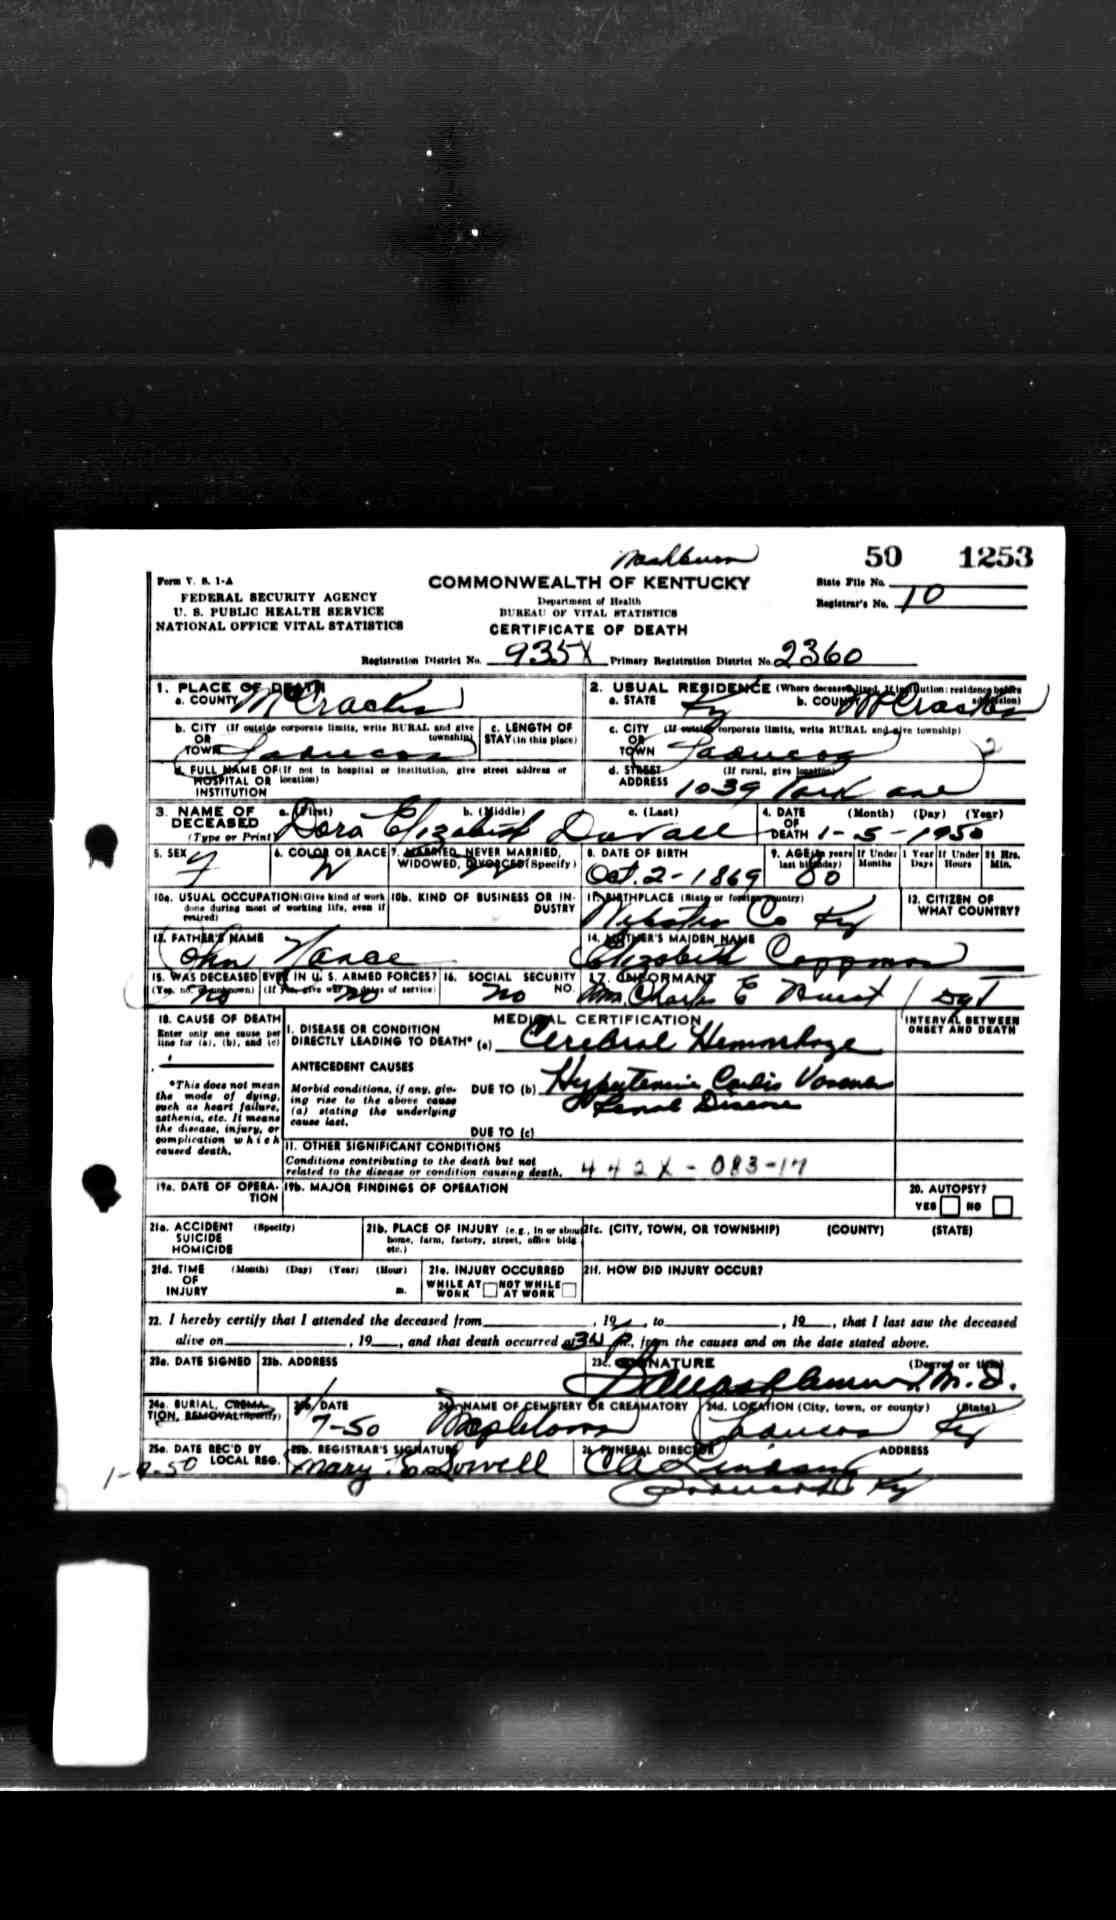 Washburn
50 1253
Form V. S. 1-A
COMMONWEALTH OF KENTUCKY
State File No.
FEDERAL SECURITY AGENCY
Department of Health
Registrar's No. 10
U. S. PUBLIC HEALTH SERVICE
BUREAU OF VITAL STATISTICS
NATIONAL OFFICE VITAL STATISTICS
CERTIFICATE OF DEATH
Registration District No. 935X Primary Registration District No. 2360
1. PLACE OF DEATH
a. COUNTY McCracken
2. USUAL RESIDENCE (Where deceased lived. If institution: residence before admission)
a. STATE Ky b. COUNTY McCracken
b. CITY (If outside corporate limits, write RURAL and give township)
OR
TOWN Paducah
c. LENGTH OF
STAY (in this place)
c. CITY (If outside corporate limits, write RURAL and give township)
OR
TOWN Paducah 2
d. FULL NAME OF (If not in hospital or institution, give street address or location)
HOSPITAL OR
INSTITUTION
d. STREET (If rural, give location)
ADDRESS 1039 Park ave
3. NAME OF DECEASED
(Type or Print)
a. (First) b. (Middle) c. (Last)
Dora Elizabeth Duvall
4. DATE OF DEATH (Month) (Day) (Year)
1-5-1950
5. SEX
F
6. COLOR OR RACE
W
7. MARRIED, NEVER MARRIED,
WIDOWED, DIVORCED (Specify)
W
8. DATE OF BIRTH
Oct. 2-1869
9. AGE (In years last birthday)
80
If Under 1 Year
Months Days
If Under 24 Hrs.
Hours Min.
10a. USUAL OCCUPATION (Give kind of work
done during most of working life, even if
retired)
10b. KIND OF BUSINESS OR INDUSTRY
11. BIRTHPLACE (State or foreign country)
Webster Co Ky
12. CITIZEN OF
WHAT COUNTRY?
13. FATHER'S NAME
John Nance
14. MOTHER'S MAIDEN NAME
Elizabeth
15. WAS DECEASED EVER IN U. S. ARMED FORCES?
(Yes, no, or unknown) (If yes, give war or dates of service)
no no
16. SOCIAL SECURITY NO.
no
17. INFORMANT
Charles E
18. CAUSE OF DEATH
Enter only one cause per
line for (a), (b), and (c)
MEDICAL CERTIFICATION
INTERVAL BETWEEN
ONSET AND DEATH
I. DISEASE OR CONDITION
DIRECTLY LEADING TO DEATH* (a) Cerebral Hemorrhage
*This does not mean
the mode of dying,
such as heart failure,
asthenia, etc. It means
the disease, injury, or
complication which
caused death.
ANTECEDENT CAUSES
Morbid conditions, if any, giv-
ing rise to the above cause
(a) stating the underlying
cause last.
DUE TO (b) Hypertensive Cardio Vascular
Renal Disease
DUE TO (c)
11. OTHER SIGNIFICANT CONDITIONS
Conditions contributing to the death but not
related to the disease or condition causing death.
442X-083-17
19a. DATE OF OPERA-
TION
19b. MAJOR FINDINGS OF OPERATION
20. AUTOPSY?
YES NO
21a. ACCIDENT (Specify)
SUICIDE
HOMICIDE
21b. PLACE OF INJURY (e.g., in or about
home, farm, factory, street, office bldg.
etc.)
21c. (CITY, TOWN, OR TOWNSHIP) (COUNTY) (STATE)
21d. TIME (Month) (Day) (Year) (Hour)
OF
INJURY m.
21e. INJURY OCCURRED
WHILE AT WORK NOT WHILE AT WORK
21f. HOW DID INJURY OCCUR?
22. I hereby certify that I attended the deceased from , 19 , to , 19 , that I last saw the deceased
alive on , 19 , and that death occurred at P m., from the causes and on the date stated above.
23a. DATE SIGNED
23b. ADDRESS
23c. SIGNATURE (Degree or title)
Washburn M.D.
24a. BURIAL, CREMA-
TION, REMOVAL (Specify)
24b. DATE
1/7-50
24c. NAME OF CEMETERY OR CREAMATORY
Mapelawn
24d. LOCATION (City, town, or county) (State)
Paducah Ky
25a. DATE REC'D BY
LOCAL REG.
1-9-50
25b. REGISTRAR'S SIGNATURE
Mary E Sowell
26. FUNERAL DIRECTOR ADDRESS
Lindsey
Paducah Ky